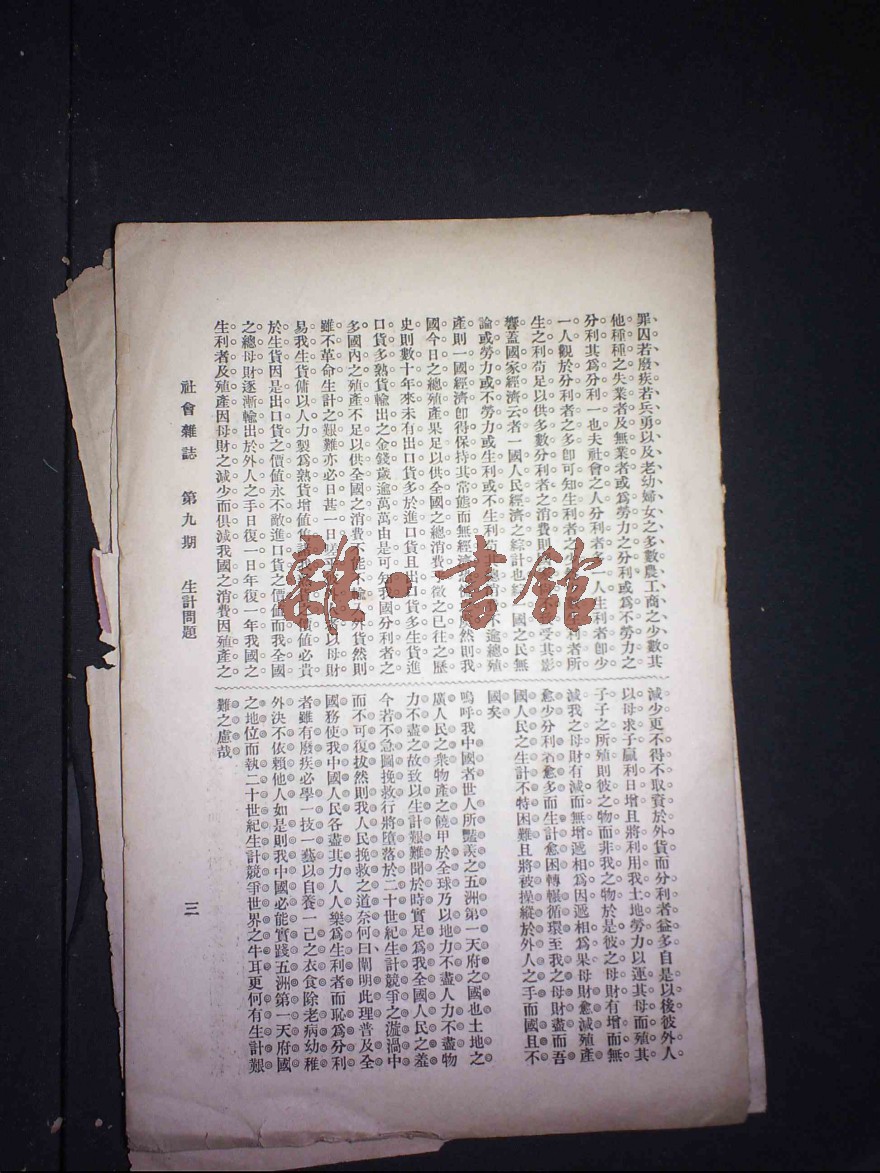 罪囚若廢疾若兵勇以及老幼婦女之多數農工商之少數其
他種種之失業者及無業者或為勞力之分利或為不勞力之
分利其為分利一也夫社會之人分利者多一人生利者卽少
一人觀於分利者之多卽可知生利者之少
利者所
生之利苟足以供多數分利者之消費則
受其影
響蓋國家經濟云者一國人民經濟之綜計也
國之民無
論或勞力或不勞力或生利或不生利
不逾總殖
產則一國經濟卽得保持其常態而無經濟
然則我
國今日之總殖產果足以供全國之總消費
徵之已往之歷
史則數十年來未有出口貨多於進口貨且出口貨多生貨進
口貨多熟貨輸出之金錢歲逾萬萬由是可知我國分利者之
多國內之殖產不足以供全國之消費不能不
外貨然則
雖不革命生計之艱難亦必日甚一日
以母財
易我生貨傭以人力製為熟貨增值倍
價值必貴
於生貨因是出口貨之價值永不敵進口貨之價值而我全國
之總母財逐漸輸出於外人之手日復一日年復一年我國之
生利者及殖產因母財之減少而俱減我國之消費因殖產之
減少更不得不取資於外貨而分利者益多自是以後彼外人
以母求子贏利日增且將利用我土地勞力以運其母而殖其
子子之所殖則彼之物而非我之物於是彼之母財有增而無
減我之母財有減而無增遞相為因遞相為果母財愈減殖產
愈少分利者愈多而生計愈困轉輾循環至我之母財盡而吾
國人民之生計不特困難且將被操縱於外人之手而國且不
國矣
嗚呼我中國者世人所豔羨之五洲第一天府之國也土地之
廣人民之衆物產之饒甲於全球乃以地力不盡人力不盡物
力不盡之故致以生計艱難聞於時實足為我全國人民之羞
今若不急圖挽救行將墮落於二十世紀生計競爭之漩渦中
而不可復拔然則我人民挽救之道奈何曰闡明此理普及全
國務使我中國人民各盡其力人人樂為生利者而恥為分利
者雖有廢疾必學一技一藝以自養一己之衣食除老病幼稚
外決不依賴他人如是則我中國必能實踐五洲第一天府國
之地位而執二十世紀生計競爭世界之牛耳更何有生計艱
難之慮哉
社會雜誌 第九期 生計問題 三
雜·書館